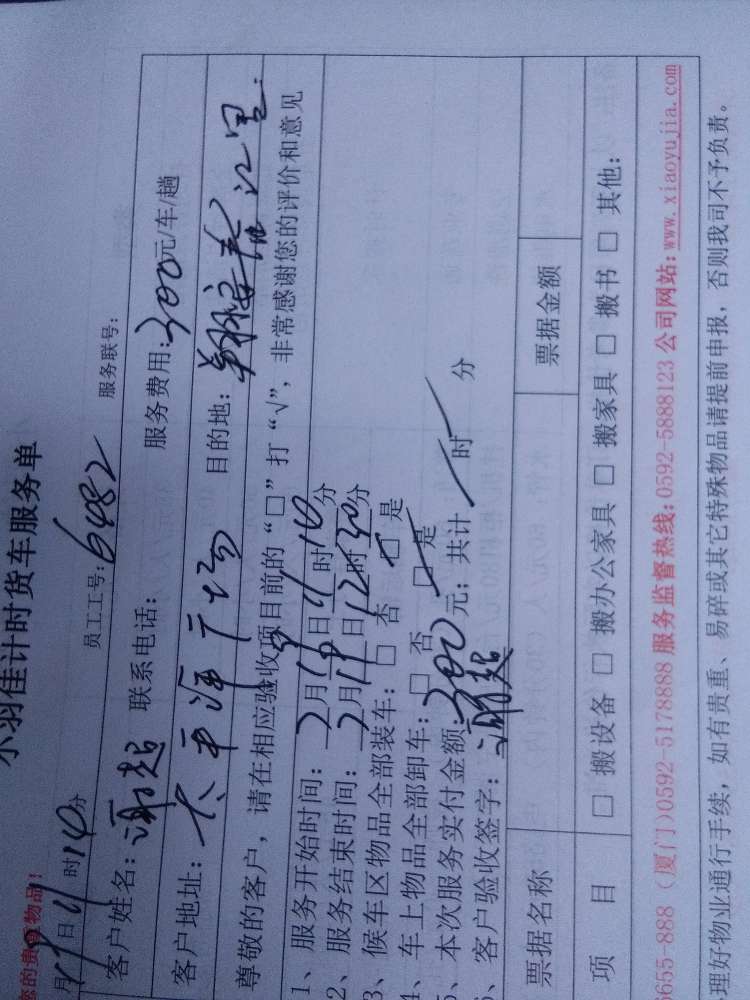 小羽佳计时货车服务单
您的贵重物品!
员工工号: 6482 服务联号:
月19日11时10分
客户姓名: 谢超 联系电话: 服务费用: 300元/车/趟
客户地址: 太平洋广场 目的地: 翔安
尊敬的客户，请在相应验收项目前的“□”打“√”，非常感谢您的评价和意见
1、服务开始时间: 2月19日11时10分
2、服务结束时间: 2月19日12时30分
3、候车区物品全部装车: □ 否 □ 是
4、车上物品全部卸车: □ 否 □ 是
5、本次服务实付金额: 300元; 共计 / 时 / 分
6、客户验收签字: 谢超
票据名称 票据金额
项 目 □ 搬设备 □ 搬办公家具 □ 搬家具 □ 搬书 □ 其他:
655-888 (厦门)0592-5178888 服务监督热线: 0592-5888123 公司网站: www.xiaoyujia.com
理好物业通行手续，如有贵重、易碎或其它特殊物品请提前申报，否则我司不予负责。